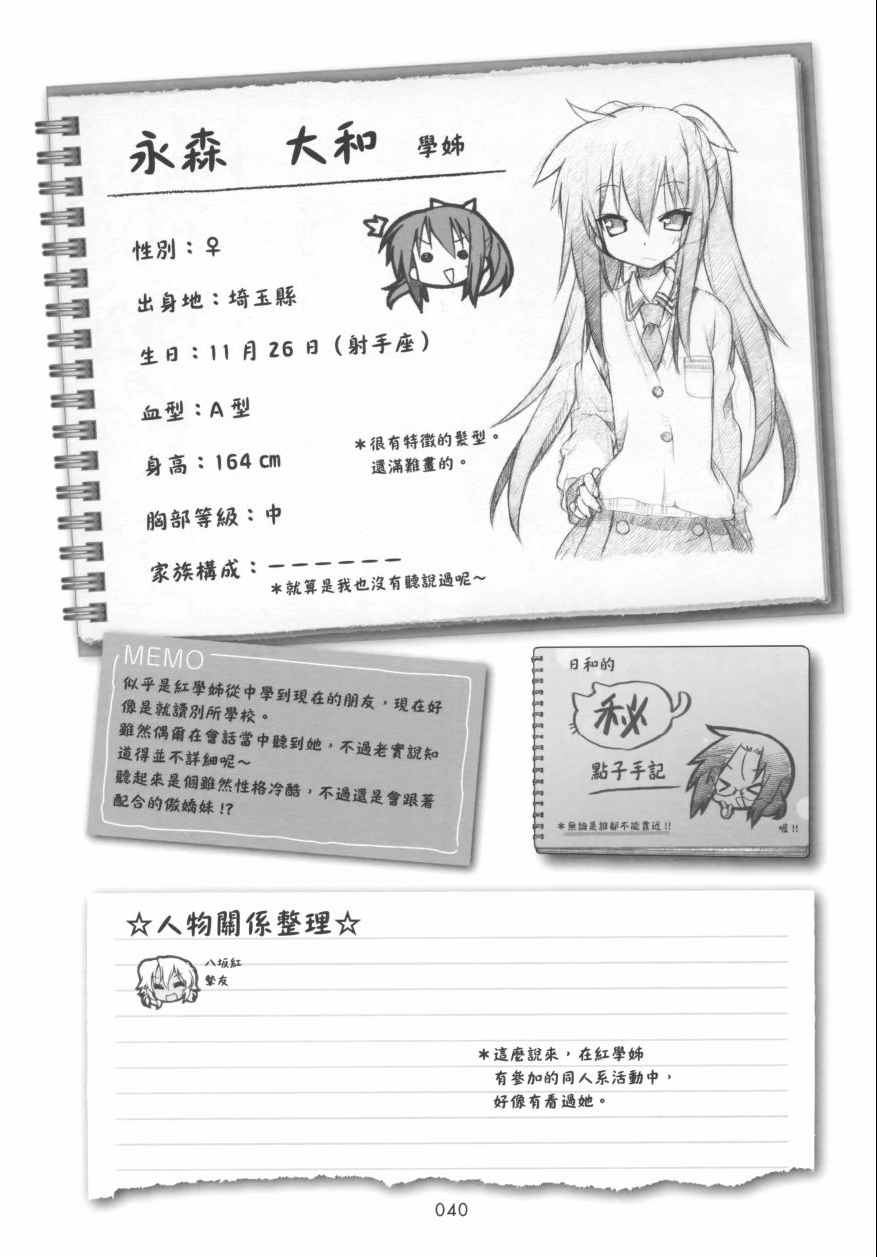 永森 大和 學姊
性別：♀
出身地：埼玉縣
生日：11月26日（射手座）
血型：A型
身高：164cm
＊很有特徵的髮型。
還滿難畫的。
胸部等級：中
家族構成：－－－－－－
＊就算是我也沒有聽說過呢～
MEMO
似乎是紅學姊從中學到現在的朋友，現在好
像是就讀別所學校。
雖然偶爾在會話當中聽到她，不過老實說知
道得並不詳細呢～
聽起來是個雖然性格冷酷，不過還是會跟著
配合的傲嬌妹!?
日和的
秘
點子手記
＊無論是誰都不能靠近!!
喔!!
☆人物關係整理☆
八坂紅
摯友
＊這麼說來，在紅學姊
有參加的同人系活動中，
好像有看過她。
040